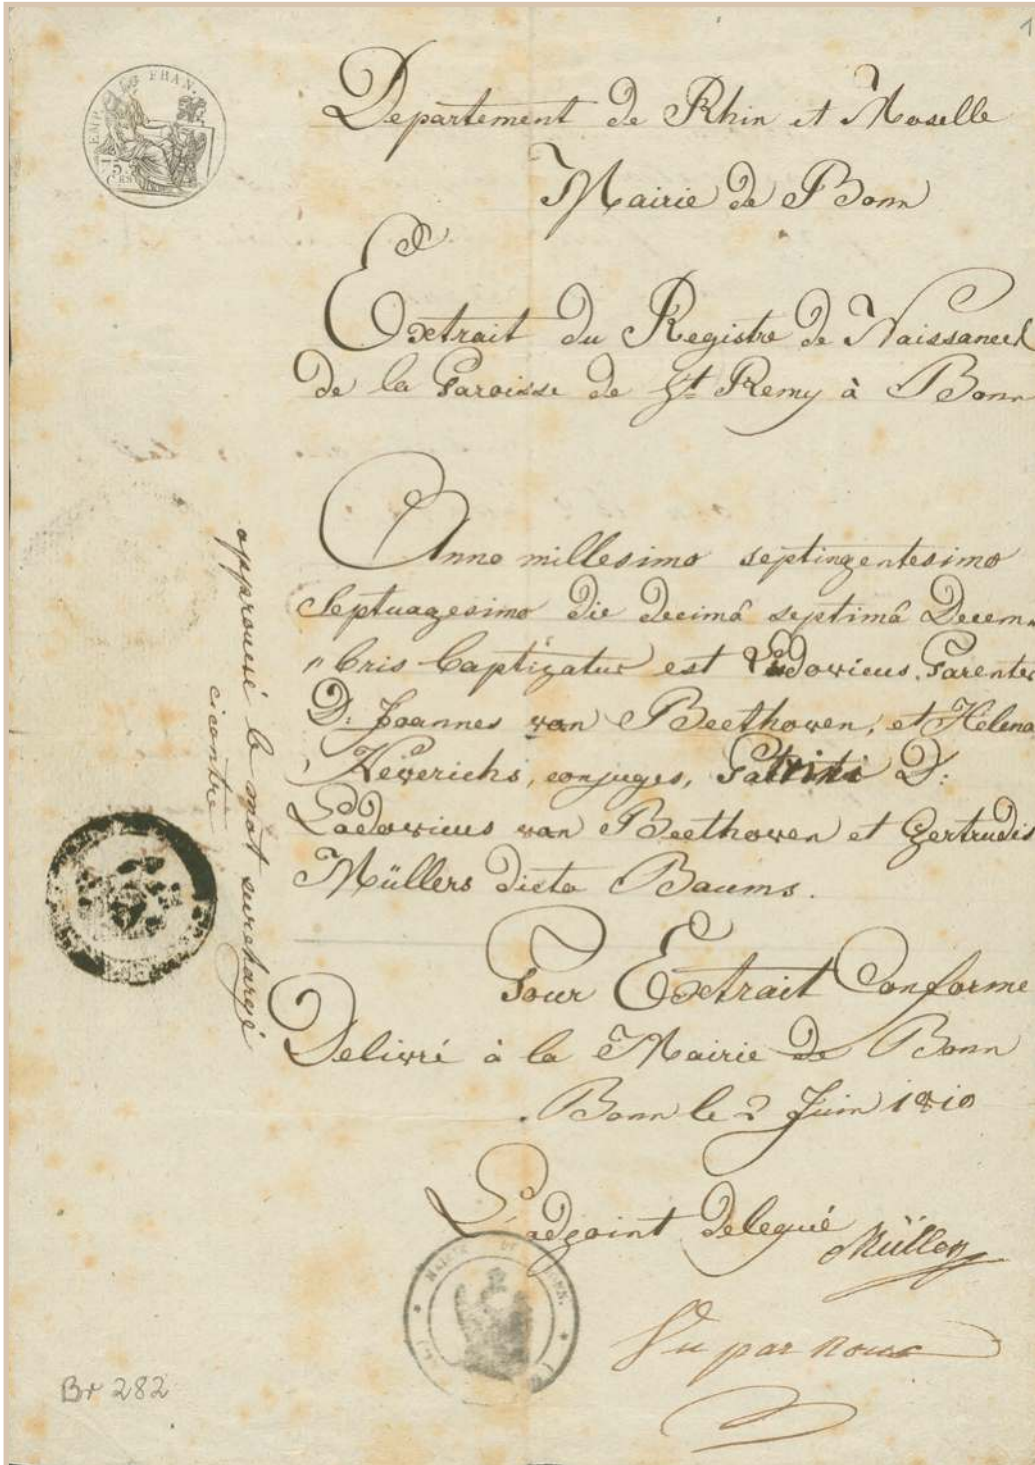 1
EMP. FRAN.
Departement de Rhin et Moselle
Mairie de Bonn
Extrait du Registre de Naissances
de la Paroisse de St. Remy à Bonn
Anno millesimo septingentesimo
Septuagesimo die decimâ septimâ Decem-
"bris baptizatus est Ludovicus. Parentes
D: Joannes van Beethoven, et Helena
Keverichs, conjuges, Patrini D:
Ludovicus van Beethoven et Gertrudis
Müllers dicta Baums.
approuvé le mot surchargé
cicontre
Pour Extrait Conforme
Delivré à la Mairie de Bonn
Bonn le 2 Juin 1810
L'adjoint delegué
Müller
MAIRIE DE BONN.
Vu par nous
Br 282